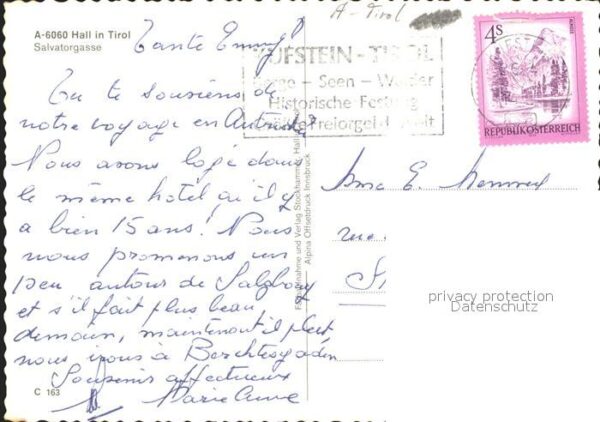 A-6060 Hall in Tirol
Salvatorgasse
A-Tirol
Tante Emmy!
Tu te souviens de
notre voyage en Autriche?
Nous avons logé dans
le même hôtel qu'il y
a bien 15 ans! Nous
nous promenons un
peu autour de Salzbourg
et s'il fait plus beau
demain, maintenant il pleut
nous irons à Berchtesgaden
Souvenir affectueux
Marie Anne
C 163
KUFSTEIN - TIROL
Berge - Seen - Wälder
Historische Festung
4S
REPUBLIK ÖSTERREICH
Verlag Stockhammer, Hall
Alpina Offsetdruck Innsbruck
Mme E.
rue
privacy protection
Datenschutz